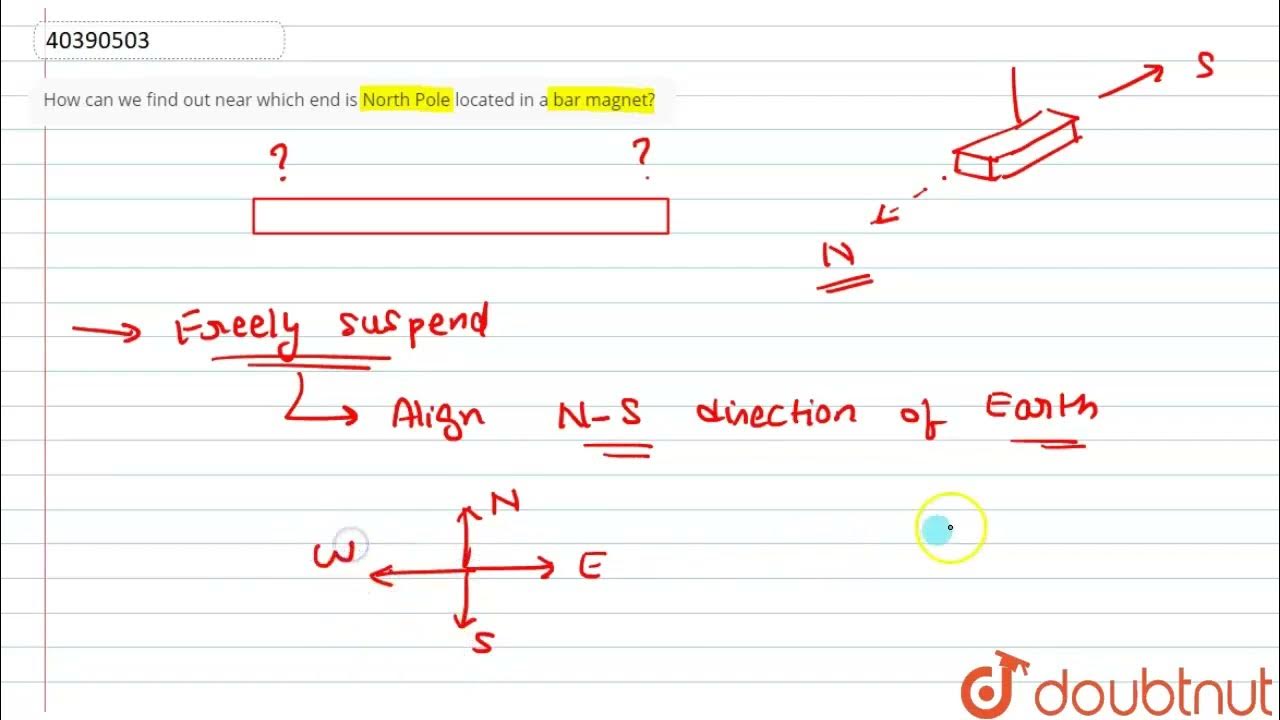 40390503
How can we find out near which end is North Pole located in a bar magnet?
S
? ?
N
→ Freely suspend
Align N-S direction of Earth
N
W E
S
doubtnut